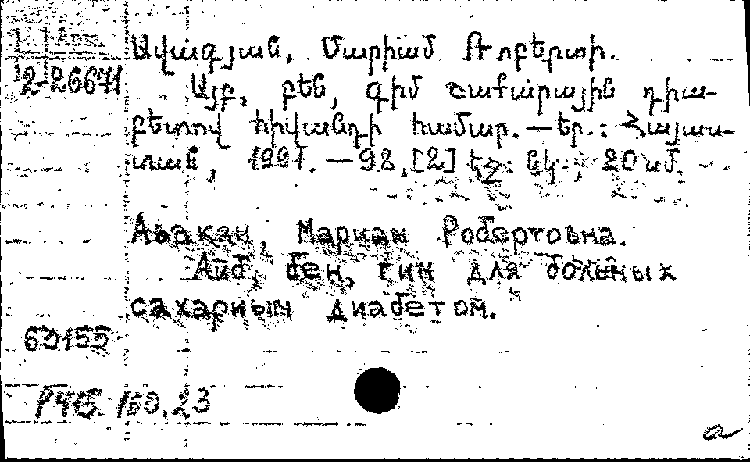 Ավագյան, Մարիամ Ռոբերտի.
2-26671
Այբ, բեն, գիմ շաքարային դիա-
բետով հիվանդի համար. — Եր.: Հայաս-
տան, 1991. — 98, [2] էջ: նկ.; 20 սմ.
Авакян, Мариам Робертовна.
Айб, бен, гим для больных
сахарным диабетом.
150.23
a